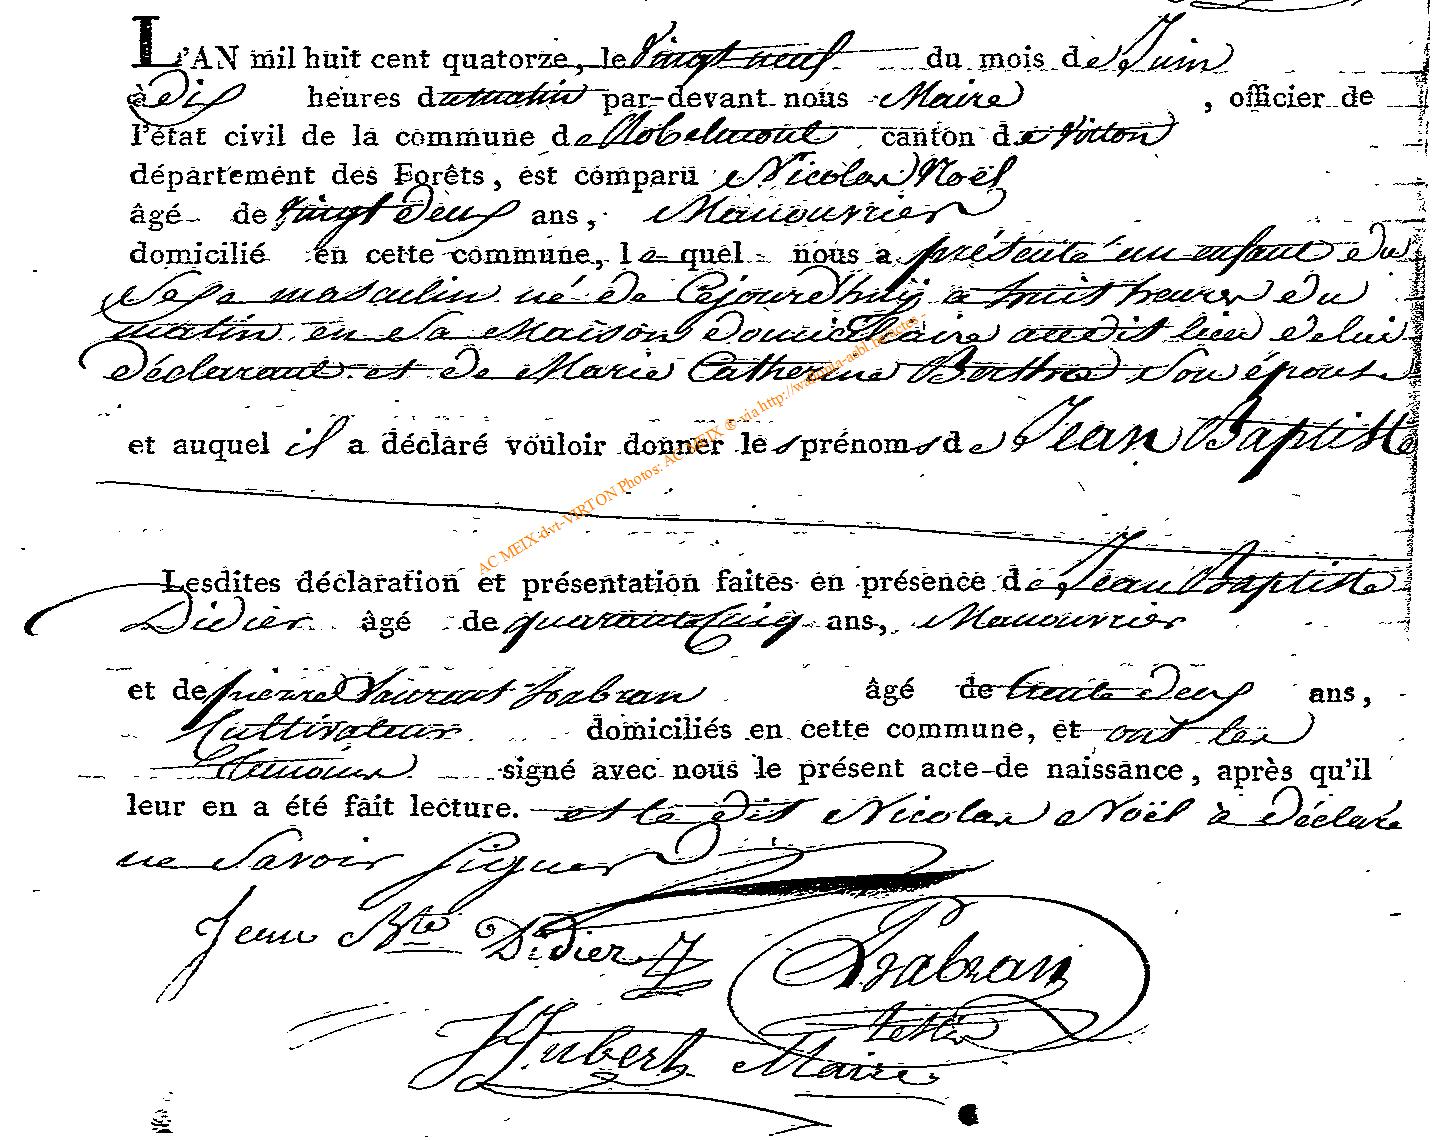 L'AN mil huit cent quatorze, le vingt neuf du mois de Juin
à dix heures du matin par-devant nous Maire , officier de
l'état civil de la commune de Robelmont canton de Virton
département des Forêts, est comparu Nicolas Noël
âgé de vingt deux ans, Manouvrier
domicilié en cette commune, le quel nous a présenté un enfant du
sexe masculin né de Cejourdhuy a huit heures du
matin en sa Maison domiciliaire audit lieu de lui
déclarant et de Marie Catherine son épouse
et auquel il a déclaré vouloir donner les prénoms de Jean Baptiste
Lesdites déclaration et présentation faites en présence de Jean Baptiste
Didier âgé de quarante Cinq ans, Manouvrier
et de pierre Laurent habran âgé de trente deux ans,
Cultivateur domiciliés en cette commune, et ont les
témoins signé avec nous le présent acte de naissance, après qu'il
leur en a été fait lecture. et le dit Nicolas Noël a déclaré
ne savoir signer
Jean Bte Didier
habran
témoin
Hubert Maire
AC MEIX-dvt-VIRTON Photos: AC MEIX ® via http://